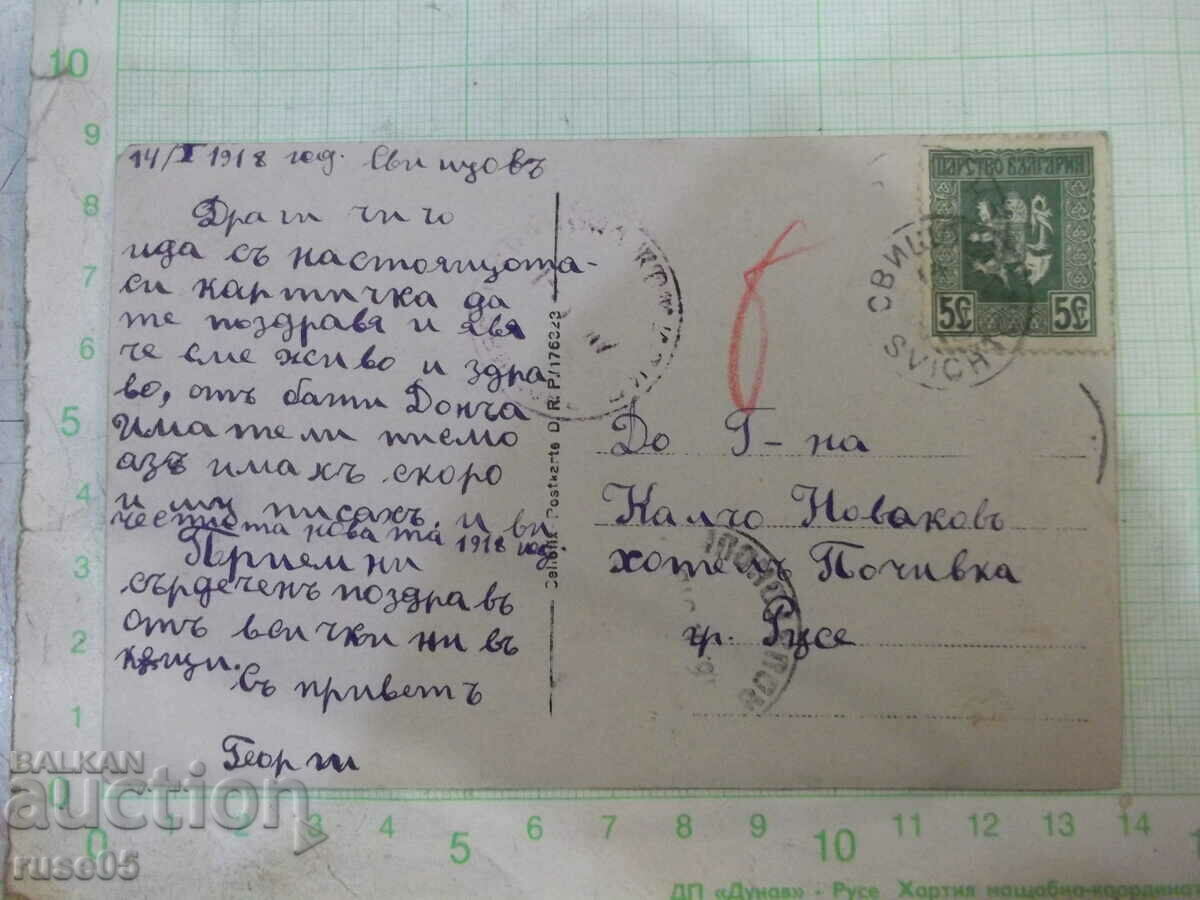 14/I 1918 год. Свищовъ
Драги чичо
ида съ настоящата-
си картичка да
те поздравя и явя
че сме живо и здра
во, отъ бати Донча
имате ли писмо
азъ имахъ скоро
и му писахъ. и ви
честита новата 1918 год.
Приемни
сърдеченъ поздравъ
отъ всички ни въ
къщи.
въ приветъ
Георги
Cellophil Postkarte D. R. P. 176323
До Г-на
Калчо Новаковъ
хотелъ Почивка
гр. Русе
5 5
СВИЩ
SVICHT
10
9
8
7
6
5
4
3
2
1
0
0 1 2 3 4 5 6 7 8 9 10 11 12 13 14
ДП «Дунав» - Русе Хартия мащабно-координат
BALKAN
auction
ruse05